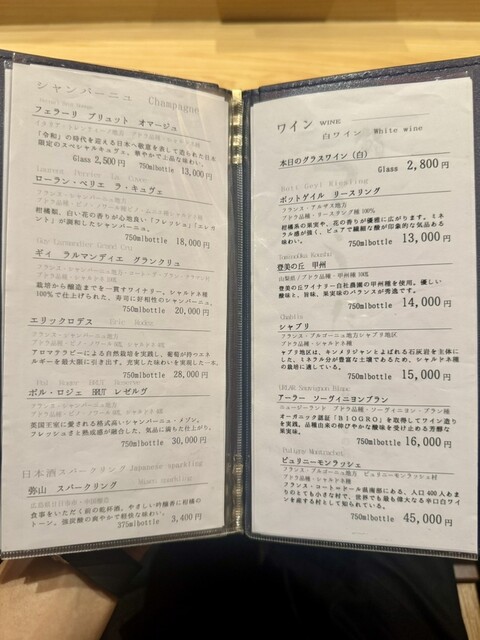 シャンパーニュ Champagne
フェラーリ ブリュット オマージュ
「令和」の時代を迎える日本へ敬意を表して造られた日本
限定のスペシャルキュヴェ。華やかで上品な味わい。
Glass 2,500円 750mlbottle 13,000円
ローラン・ペリエ ラ・キュヴェ
柑橘類、白い花の香りが心地良い「フレッシュ」「エレガ
ント」が調和したシャンパーニュ。
750mlbottle 18,000円
ギィ ラルマンディエ グランクリュ
栽培から醸造までを一貫すワイナリー。シャルドネ種
100%で仕上げられた、寿司に好相性のシャンパーニュ。
750mlbottle 20,000円
エリックロデス
アロマテラピーによる自然栽培を実践し、葡萄が持つエネ
ルギーを最大限に引き出す。充実した味わいを実現した一本。
750mlbottle 28,000円
ポル・ロジェ BRUT レゼルヴ
英国王室に愛される格式高いシャンパーニュ・メゾン。
フレッシュさと熟成感が融合した、気品に満ちた仕上がり。
750mlbottle 30,000円
日本酒スパークリング Japanese sparkling
弥山 スパークリング
食事をいただく前の乾杯酒。やさしい吟醸香に柑橘の
トーン。強炭酸の爽やかで軽快な味わい。
375mlbottle 3,400円
ワイン WINE
白ワイン White wine
本日のグラスワイン(白)
Glass 2,800円
Bott Geyl Riesling
ボットゲイル リースリング
フランス・アルザス地方
ブドウ品種・リースリング種 100%
柑橘系の果実や、花の香りが優雅に広がります。ミネ
ラル感が強く、ピュアで繊細な酸が印象的な気品ある
味わい。
750mlbottle 13,000円
登美の丘 甲州
山梨県/ブドウ品種・甲州種 100%
登美の丘ワイナリー自社農園の甲州種を使用。優しい
酸味と、旨味、果実味のバランスが秀逸です。
750mlbottle 14,000円
Chablis
シャブリ
フランス・ブルゴーニュ地方シャブリ地区
ブドウ品種・シャルドネ種
シャブリ地区は、キンメリジャンとよばれる石灰岩を主体に
した、ミネラル分が豊富な土壌であるため、シャルドネ種の
栽培に適している。
750mlbottle 15,000円
Sauvignon Blanc
アーラー ソーヴィニヨンブラン
ニュージーランド ブドウ品種・ソーヴィニヨン・ブラン種
オーガニック認証『BIOGRO』を取得してワイン造り
を実践。品種由来の伸びやかな酸味を受け止める芳醇な
果実味。
750mlbottle 16,000円
Puligny Montrachet
ピュリニーモンラッシェ
フランス・ブルゴーニュ地方 ピュリニーモンラッシェ村
ブドウ品種・シャルドネ種
フランス・コート＝ドール県南部にある、人口400人あま
りのとても小さな村で、世界でも最も偉大なる辛口白ワイ
ンを産する村として知られている。
750mlbottle 45,000円